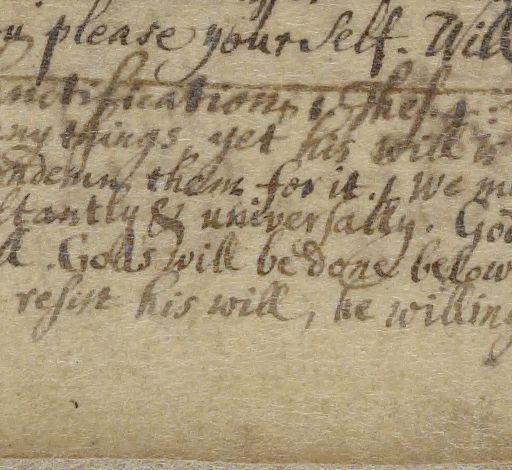 please your self. Will
notification,
ny things, yet his will is
ondemn them for it. We m
ltantly & universally. God
. Gods will be done below
resist his will, he willing